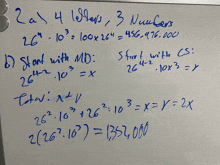 2 a) 4 letters, 3 Numbers
26⁴ · 10³ = 100x26⁴ = 456,976,000
b) Start with MD: Start with CS:
26⁴⁻² · 10³ = x 26⁴⁻² · 10x3 = y
Total: x+y
26² · 10³ + 26² · 10³ = x = y = 2x
2(26² · 10³) = 1,352,000